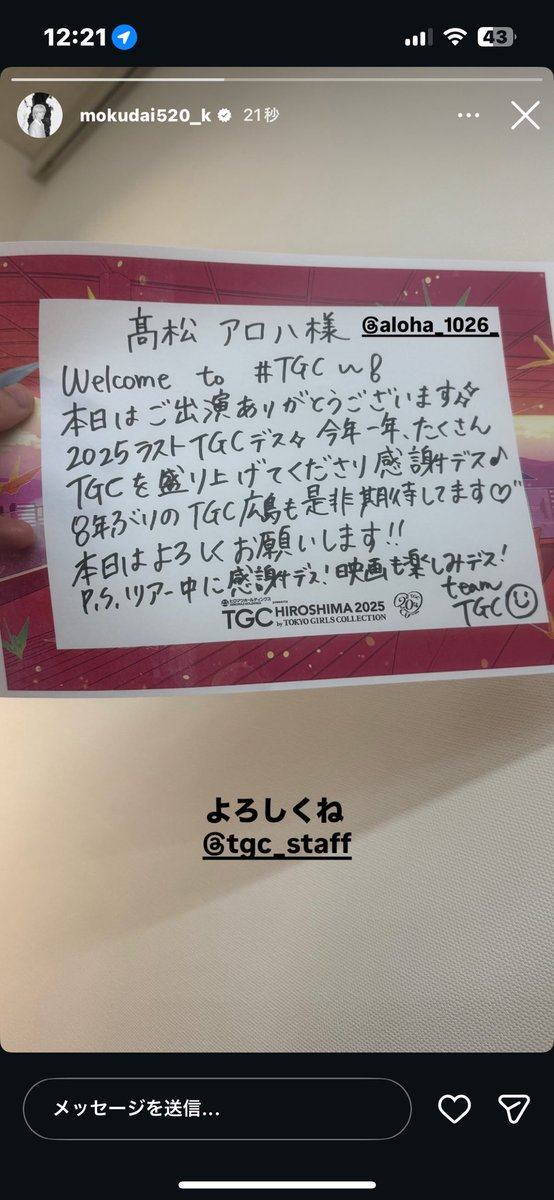 12:21
43
mokudai520_k 21秒
髙松 アロハ様 @aloha_1026_
Welcome to #TGC
本日はご出演ありがとうございます
2025ラストTGCデス 今年一年、たくさん
TGCを盛り上げてくださり感謝デス♪
8年ぶりのTGC広島も是非期待してます♡
本日はよろしくお願いします!!
P.S.ツアー中に感謝デス!映画も楽しみデス!
team
TGC
TGC HIROSHIMA 2025
by TOKYO GIRLS COLLECTION
よろしくね
@tgc_staff
メッセージを送信...